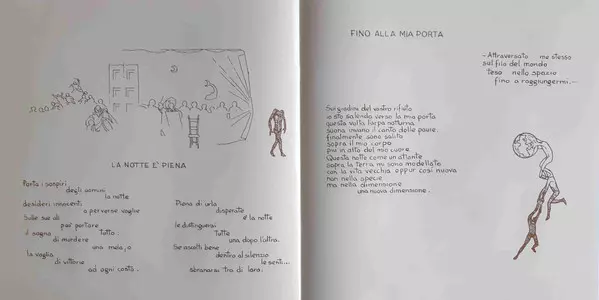 LA NOTTE E' PIENA
Porta i sospiri
degli uomini
la notte
desideri innocenti
a perverse voglie
Sulle sue ali
per portare
il sogno tutto
di mordere
una mela, o
la voglia
di vittorie
ad ogni costo.
Piena di urla
disperate
è la notte
le distinguersi
tutte
una dopo l'altra.
Se ascolti bene
dentro al silenzio
le senti...
sbranarsi tra di loro.
FINO ALLA MIA PORTA
- Attraversato me stesso
sul filo del mondo
teso nello spazio
fino a raggiungermi. -
Sui gradini del vostro rifiuto
io sto salendo verso la mia porta
questa volta l'arpa notturna
suona invano il canto delle paure.
finalmente sono salito
sopra il mio corpo
più in alto del mio cuore
Questa notte come un atlante
sopra la terra mi sono modellato
con la vita vecchia oppur così nuova
non nella specie
ma nella dimensione
una nuova dimensione.